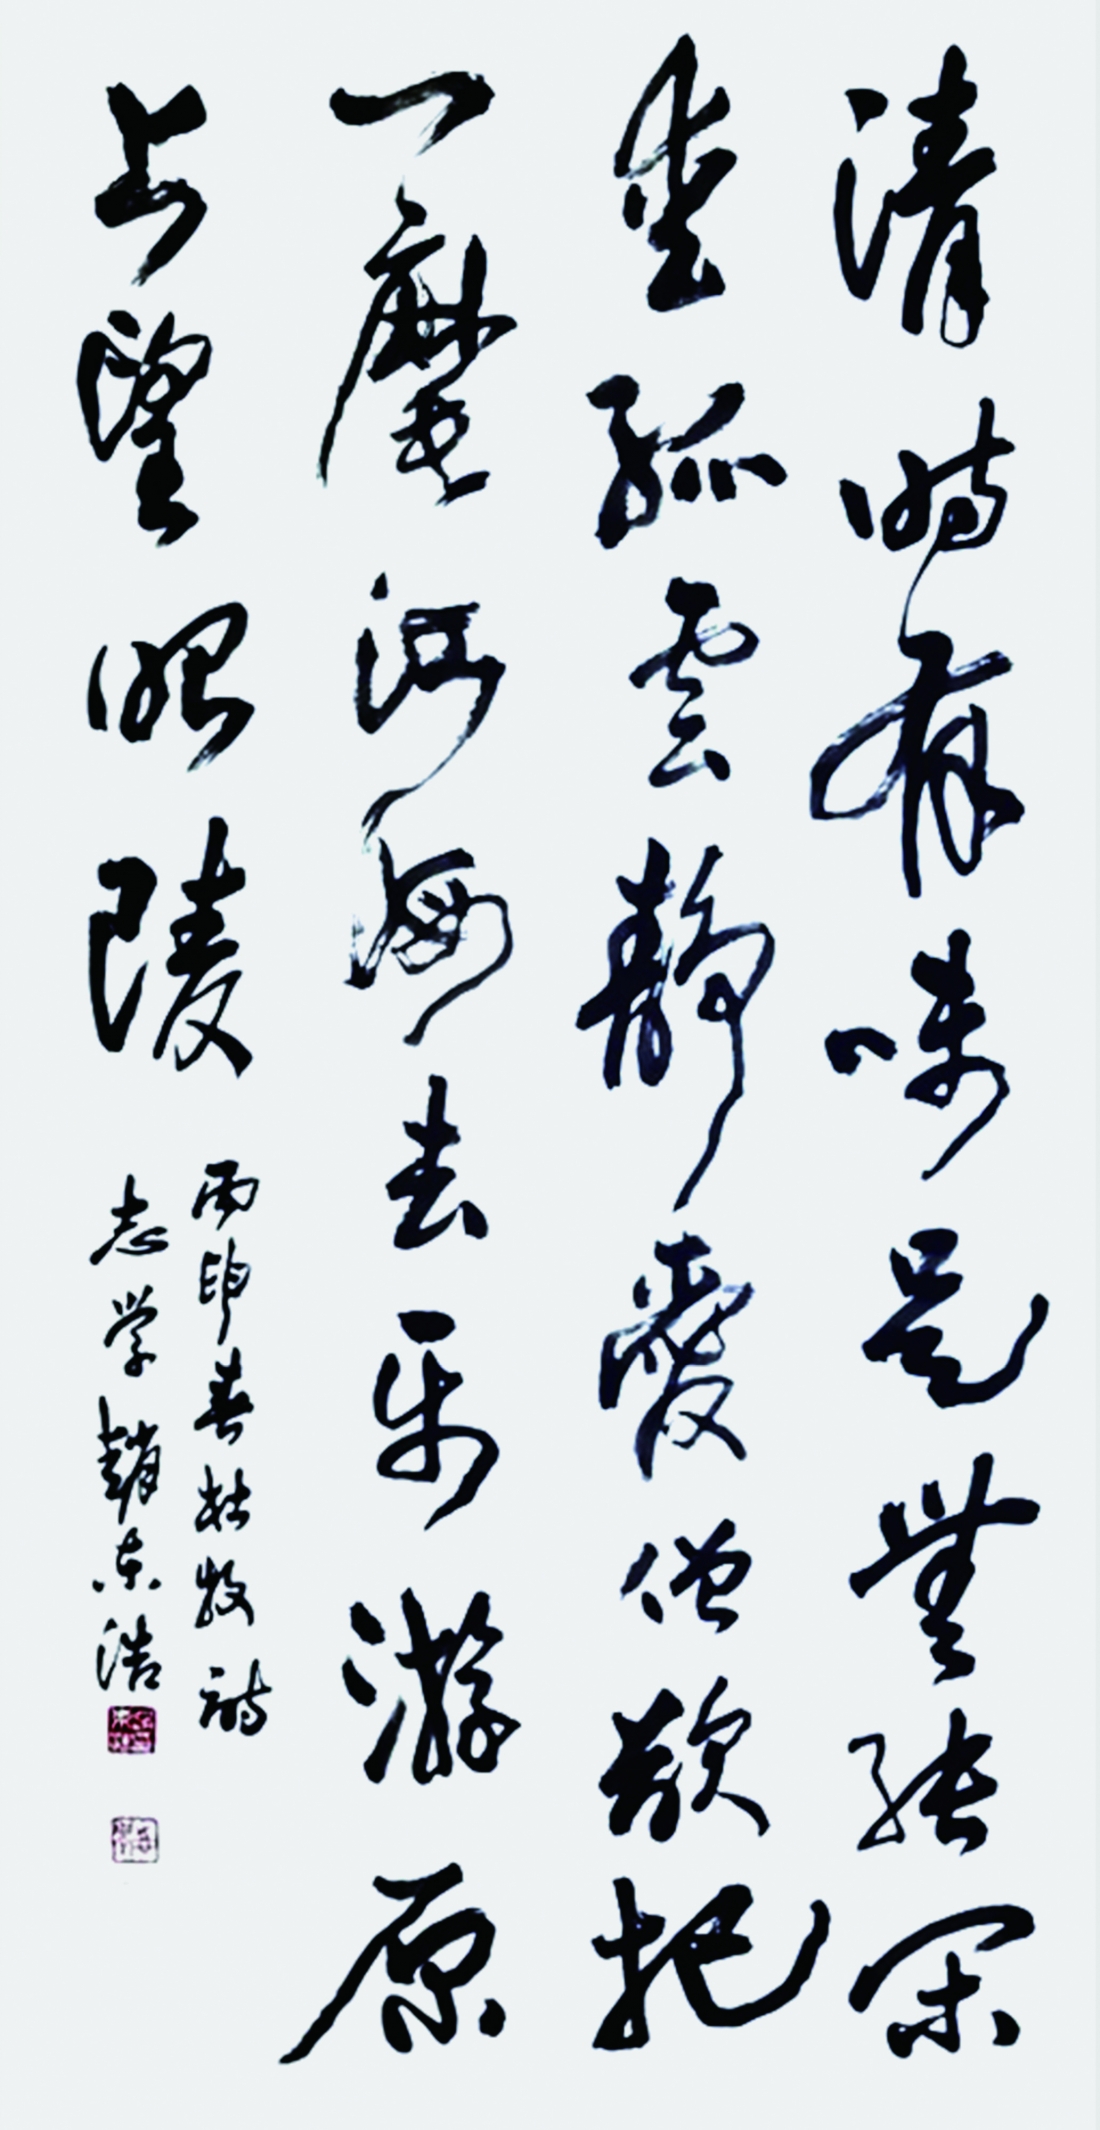 清時有味是無能閑
愛孤雲静愛僧欲把
一麾河海去乐游原
上望昭陵
丙申春杜牧詩
志学趙东浩